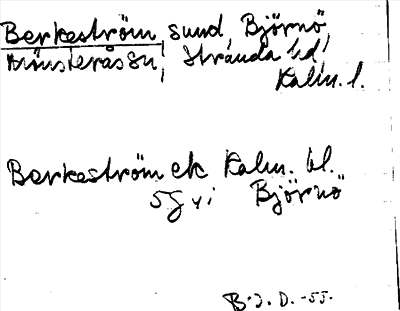 Berkeström, sund, Björnö,
Mönsterås sn, Stranda hd,
Kalm. l.
Berkeström ek Kalm. bl.
5G vi Björnö
B.J.D. -55.